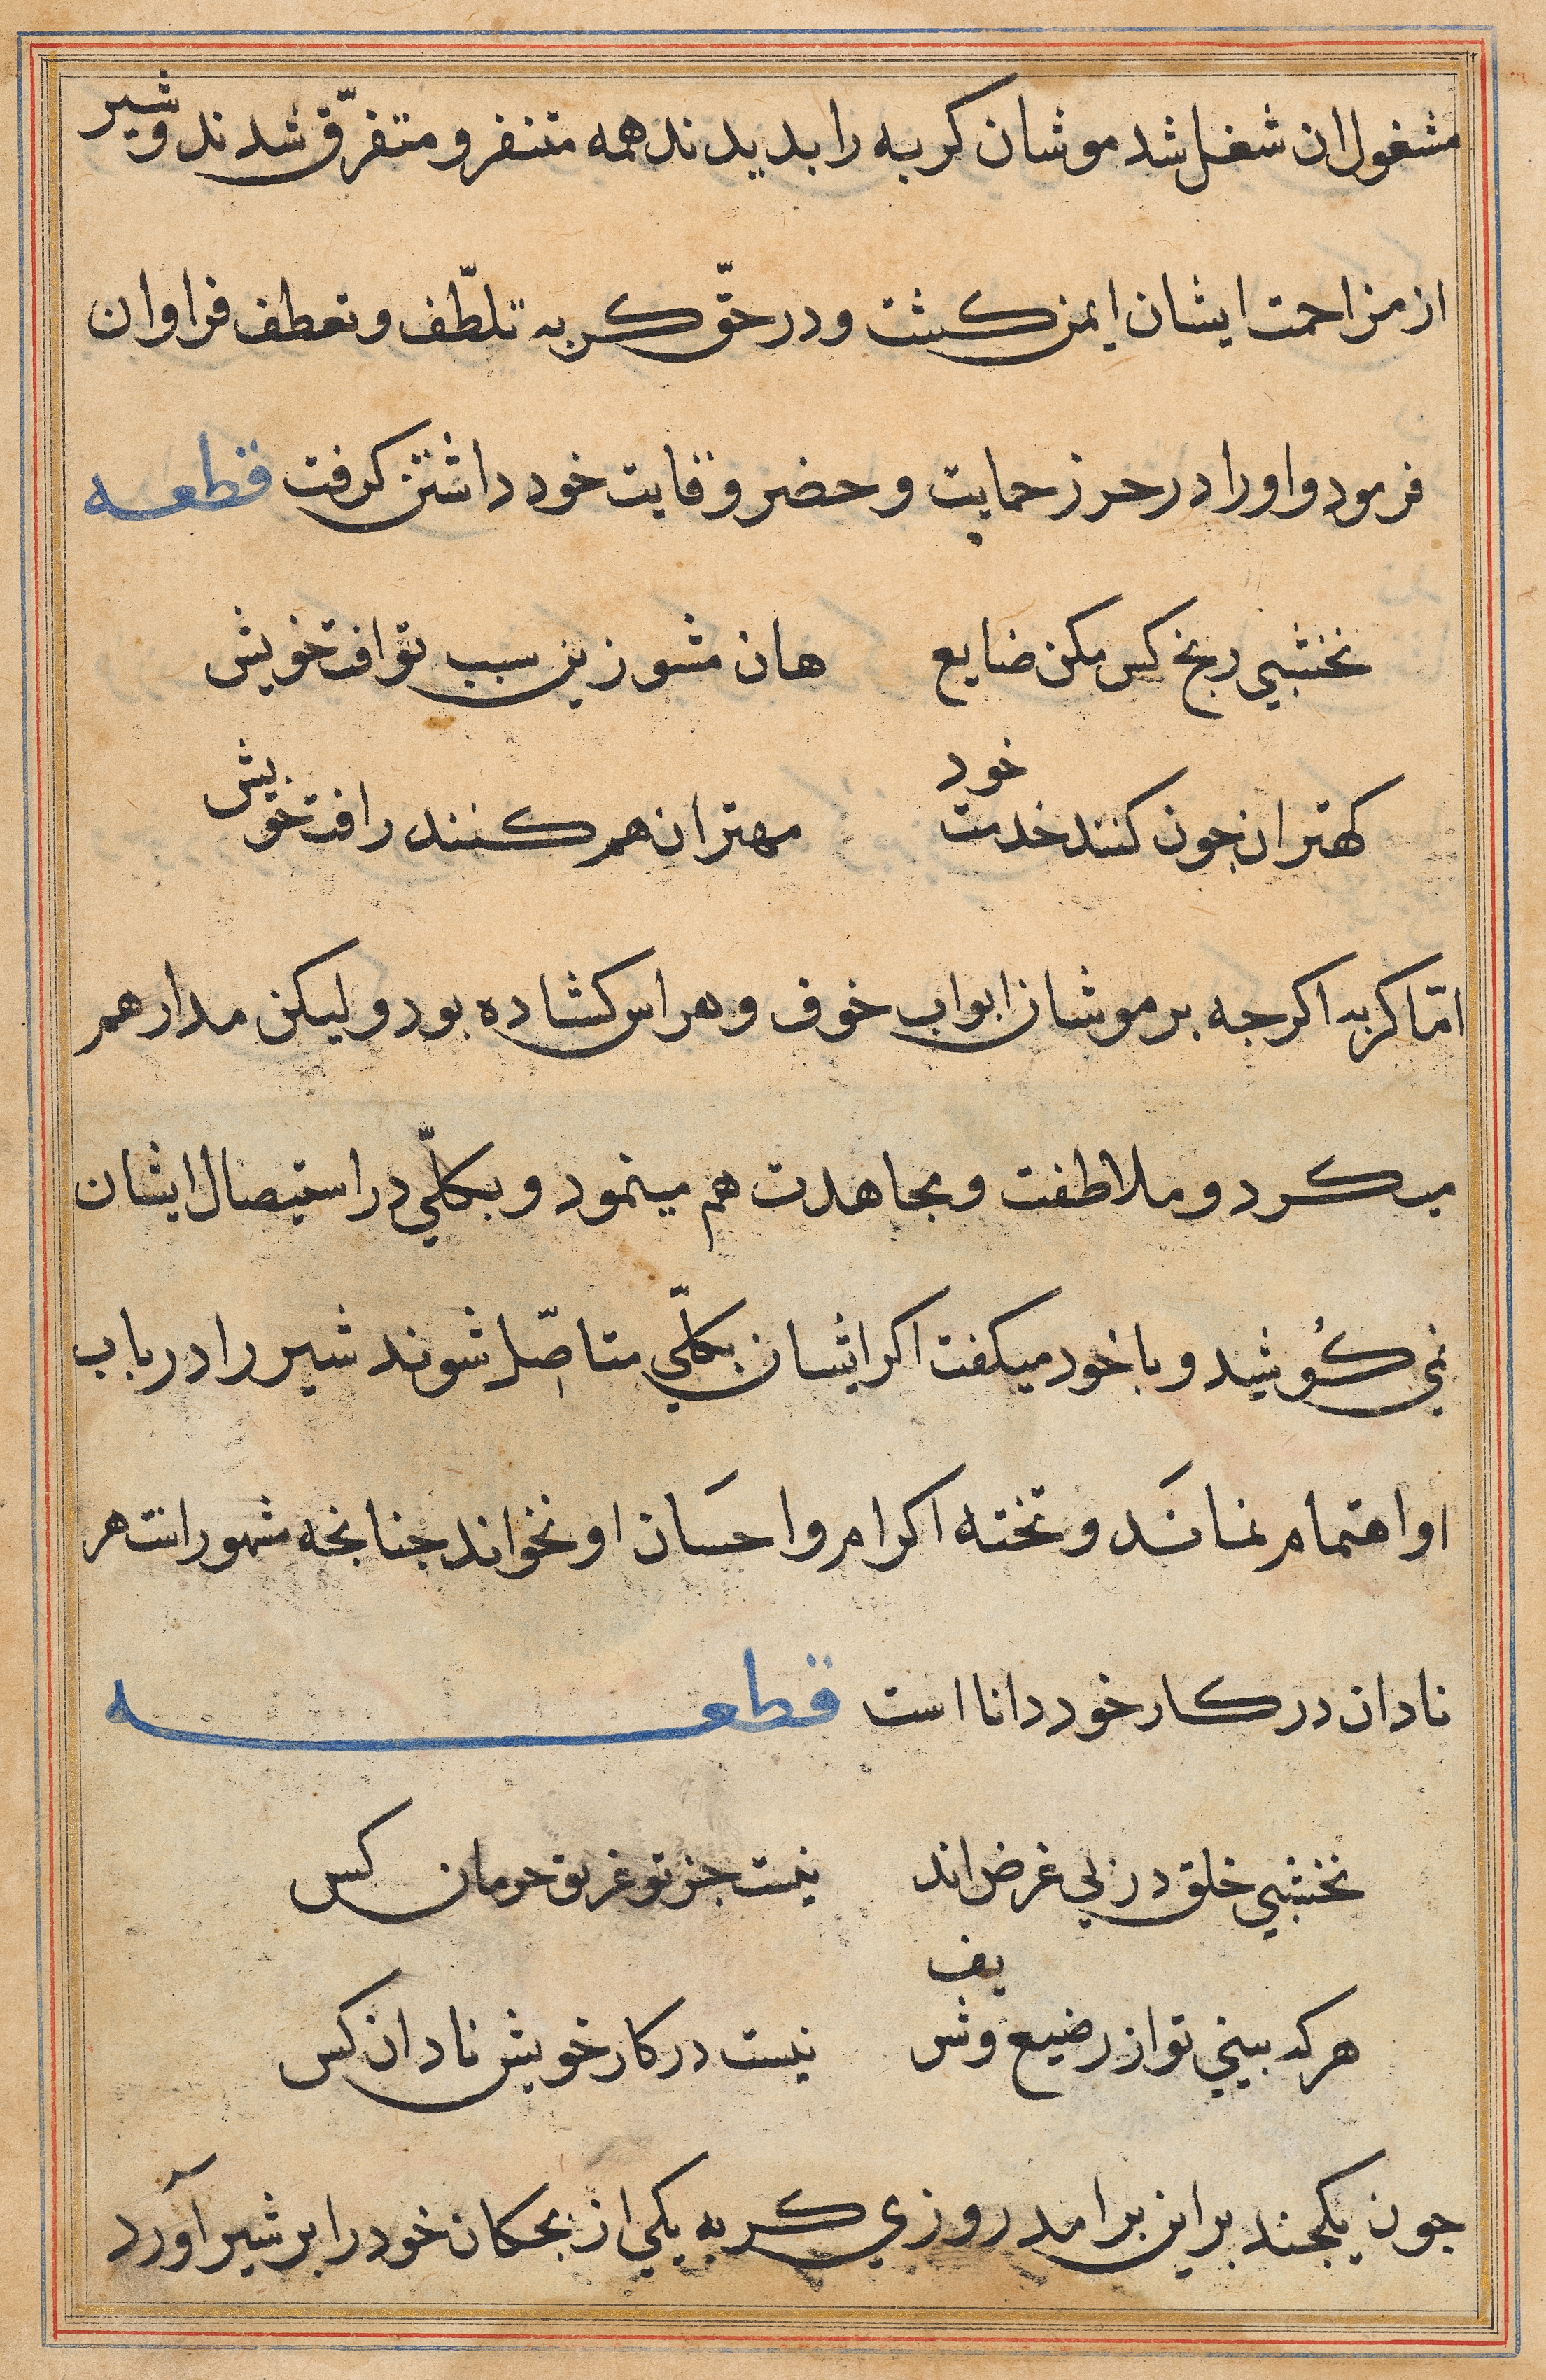 مشغول ان شغل شد موشان كربه را بديدند همه متنفر و متفرّق شدند و شير
از مزاحمت ايشان ايمن كشت و در حقّ كربه تلطّف و تعطف فراوان
فرمود و او را در حرز حمايت و حضر وقايت خود داشتن كرفت قطعه
نخشبي رنج كس مكن ضايع هان مشو زين سبب تو افت خويش
كهتران جون كنند خدمت خود مهتران هم كنند رافت خويش
امّا كربه اكرجه بر موشان ابواب خوف و هراس كشاده بود و ليكن مدار هم
ميكرد و ملاطفت و مجاهدت هم مينمود و بكلّي در استيصال ايشان
نمي كُوشيد و با خود ميكفت اكر ايشان بكلّي متاصّل شوند شير را در باب
او اهتمام نمانَد و تخته اكرام و احسَان او نخواند جنانجه مشهور است هر
نادان در كار خود دانا است قطعه
نخشبي خلق در زبي غرض اند نيست جز تو غريق حرمان كس
هركه بيني تو از رضيع و شريف نيست در كار خويش نادان كس
جون يكجند بر اين برامد روزي كربه يكي از بجكان خود را بر شير آورد